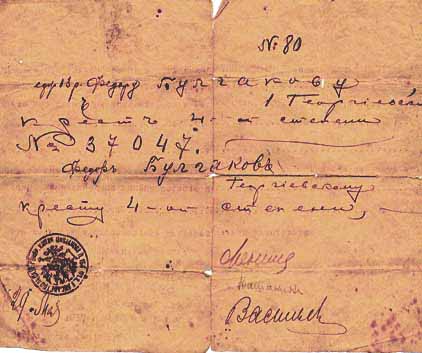 № 80
ефр. Федору Булгакову
1 Георгіевскій
крестъ 4-ой степени
№ 37047.
Федоръ Булгаковъ
Георгіевскому
кресту 4-ой степени,
29 Мая